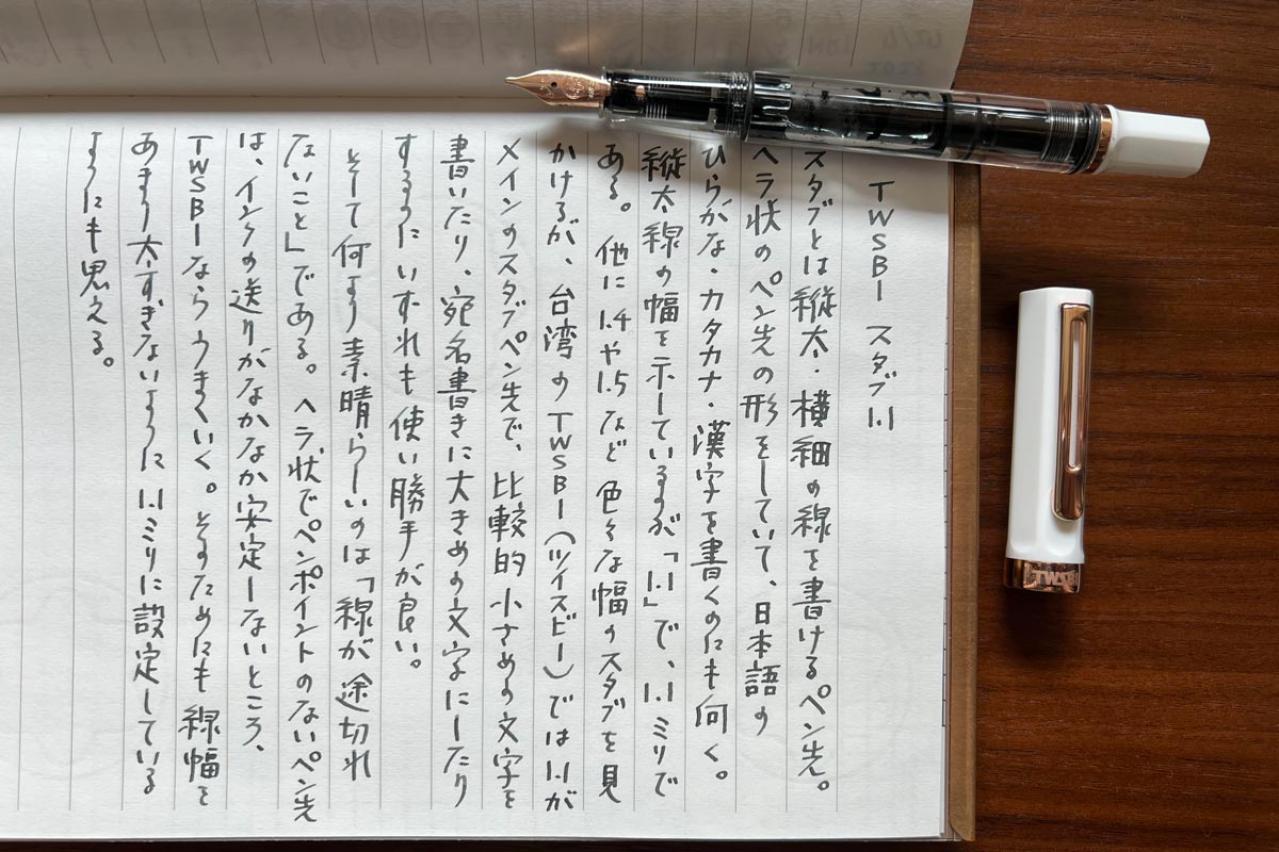 TWSBI スタブ 1.1
スタブとは縦太・横細の線を書けるペン先。
ヘラ状のペン先の形をしていて、日本語の
ひらがな・カタカナ・漢字を書くのにも向く。
縦太線の幅を示しているのが「1.1」で、1.1ミリで
ある。他に1.4や1.5など色々な幅のスタブを見
かけるが、台湾のTWSBI(ツイスビー)では1.1が
メインのスタブペン先で、比較的小さめの文字を
書いたり、宛名書きに大きめの文字にしたり
するのにいずれも使い勝手が良い。
そして何より素晴らしいのは「線が途切れ
ないこと」である。ヘラ状でペンポイントのないペン先
は、インクの送りがなかなか安定しないところ、
TWSBIならうまくいく。そのためにも線幅を
あまり太すぎないように1.1ミリに設定している
ようにも思える。